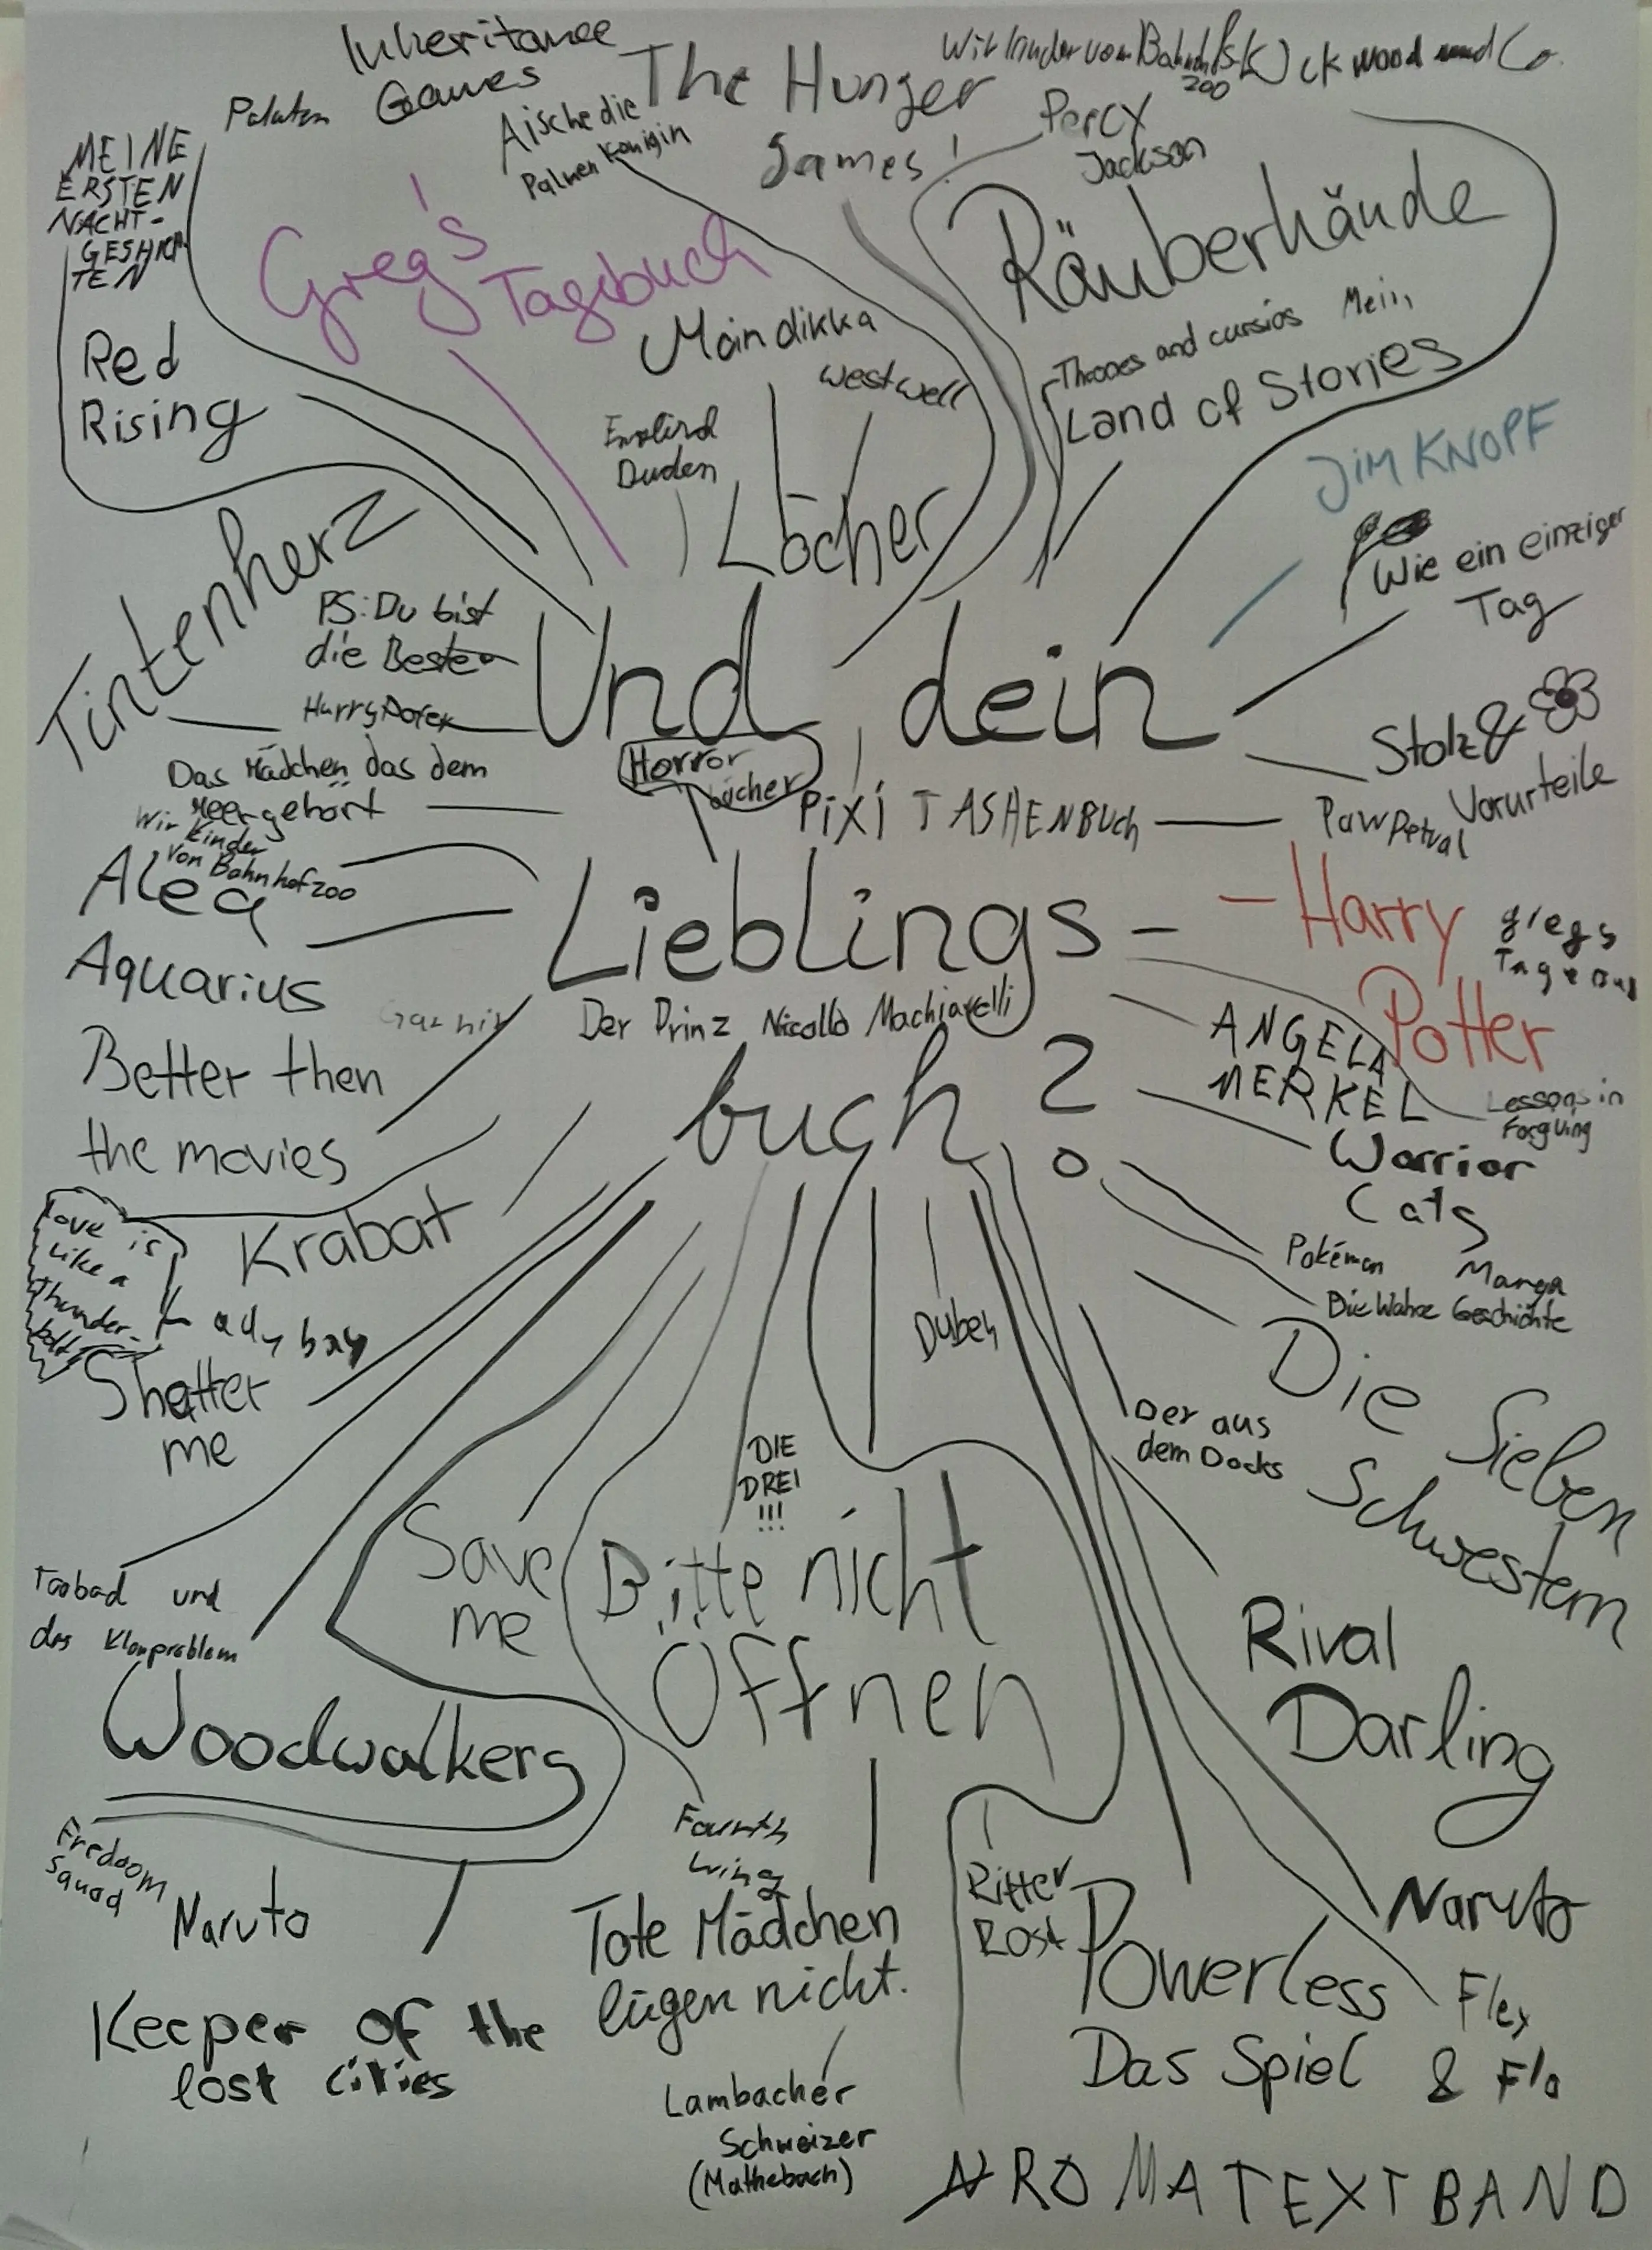 Inheritance
Games
Paluten
Aische die
Palmen Königin
The Hunger
Games!
Wir kinder vom Bahnhof
ckwood und Co.
Percy
Jackson
MEINE
ERSTEN
NACHT-
GESHICH
TEN
Greg's
Tagebuch
Räuberhände
Red
Rising
Westwell
Land of Stories
Duden
Löcher
JIM KNOPF
Wie ein einziger
Tag
Tintenherz
PS: Du bist
die Beste
Harry Poter
Und dein
Horror
bücher
Stolz &
Vorurteile
Das Mädchen das dem
Meer gehört
PiXi TASHENBUCH
Paw Petrol
Wir Kinder
von Bahnhof zoo
Alea
Aquarius
Lieblings-
Harry
Potter
Der Prinz Nicollò Machiavelli
buch?
ANGELA
MERKEL
Lessons in
Better then
the movies
Warrior
Cats
Krabat
Love is
like a
thunder-
bolt
Lady bay
Pokémon Manga
Die Wahre Geschichte
Duden
Shatter
me
Der aus
dem Docks
Die Sieben
Schwestern
DIE
DREI
!!!
Save
me
Bitte nicht
Öffnen
und
das Kloproblem
Rival
Darling
Woodwalkers
Fredoom
Squad
Naruto
Fourth
Wing
Tote Mädchen
lügen nicht.
Ritter
Rost
Powerless
Das Spiel
Naruto
Flex
& Flo
Keeper of the
lost cities
Lambacher
Schweizer
(Mathebuch)
ROMATEXTBAND